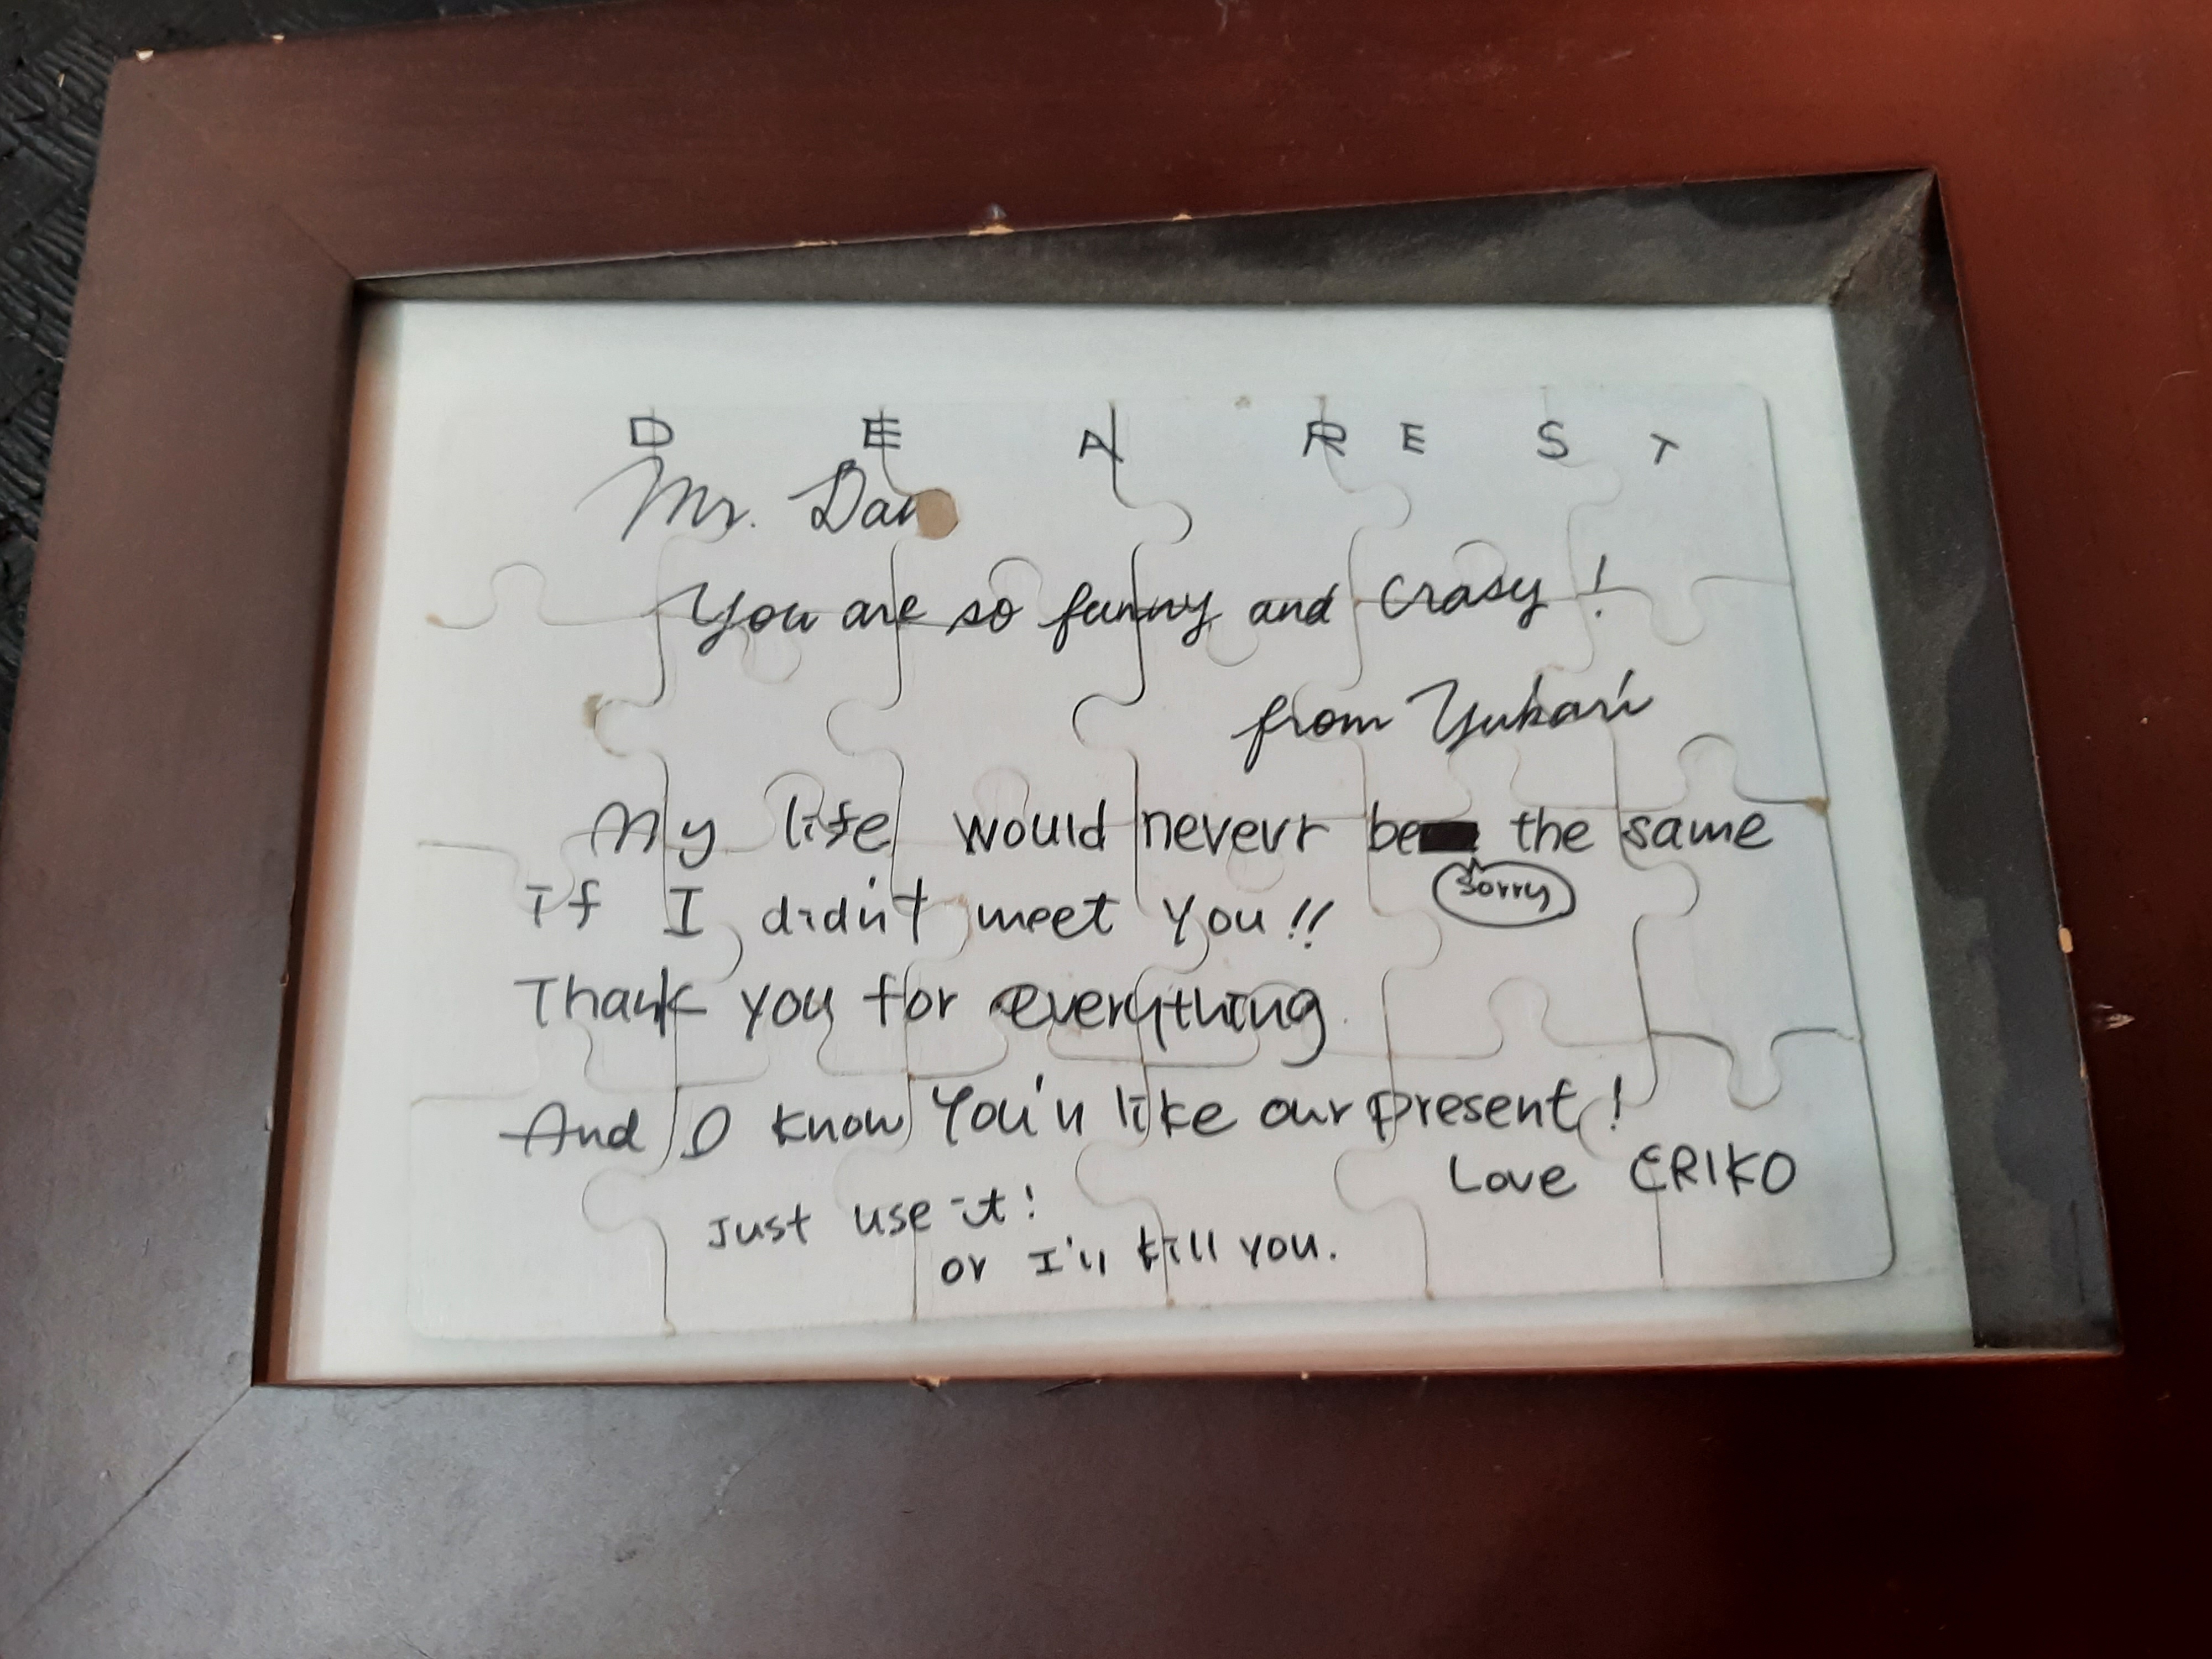 DEAREST
Mr. Dan
You are so funny and crasy!
from Yukari
My life would neverr be the same
sorry
If I didn't meet you!!
Thank you for everything.
And I know You'll like our present!
Love ERIKO
Just use it!
or I'll kill you.